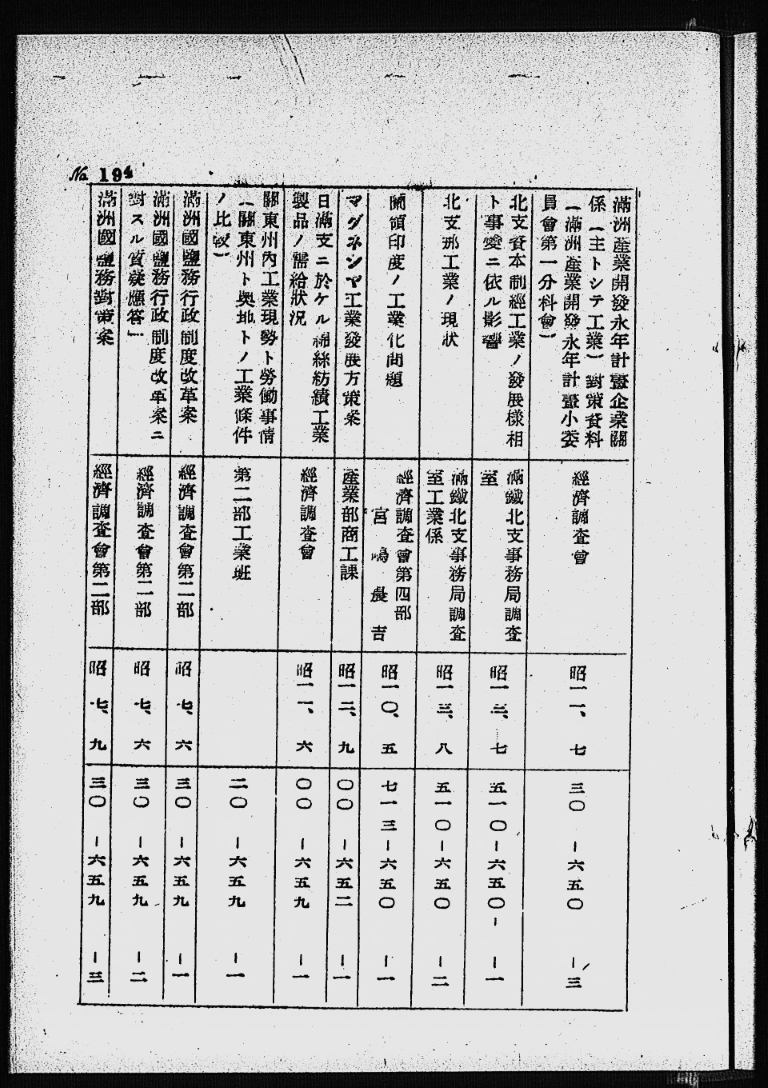 No. 194
滿洲產業開發永年計畫企業關
係(主トシテ工業)對策資料
(滿洲產業開發永年計畫小委
員會第一分科會)
經濟調査會
昭一一、七
三〇-六五〇-三
北支資本制經工業ノ發展樣相
ト事變ニ依ル影響
滿鐵北支事務局調査
室
昭一三、七
五一〇-六五〇-一
北支那工業ノ現狀
滿鐵北支事務局調査
室工業係
昭一三、八
五一〇-六五〇-二
蘭領印度ノ工業化問題
經濟調査會第四部
宮嶋長吉
昭一〇、五
七一三-六五〇-一
マグネシヤ工業發展方策案
產業部商工課
昭一二、九
〇〇-六五二-一
日滿支ニ於ケル綿絲紡績工業
製品ノ需給狀況
經濟調査會
昭一一、六
〇〇-六五九-一
關東州內工業現勢ト勞働事情
(關東州ト奧地トノ工業條件
ノ比較)
第二部工業班
二〇-六五九-一
滿洲國鹽務行政制度改革案
經濟調査會第二部
昭七、六
三〇-六五九-一
滿洲國鹽務行政制度改革案ニ
對スル質疑應答」
經濟調査會第二部
昭七、六
三〇-六五九-二
滿洲國鹽務對策案
經濟調査會第二部
昭七、九
三〇-六五九-三